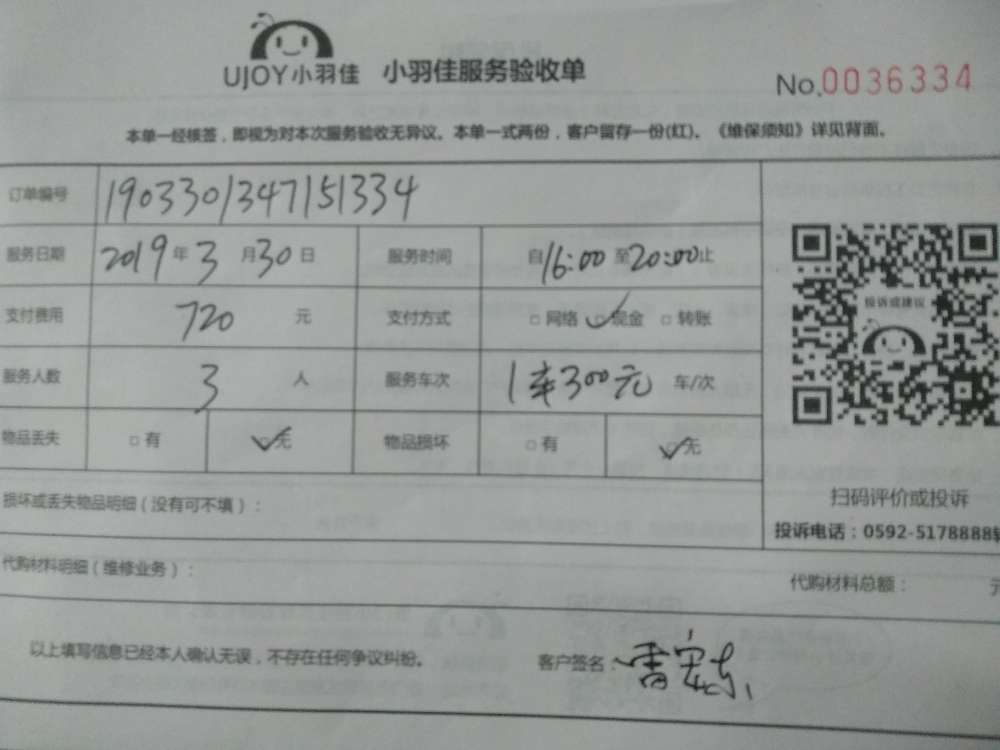 UJOY小羽佳 小羽佳服务验收单
No.0036334
本单一经核签，即视为对本次服务验收无异议。本单一式两份，客户留存一份(红)。《维保须知》详见背面。
订单编号 1903301347151334
服务日期 2019年3月30日 服务时间 自16:00至20:00止
支付费用 720 元 支付方式 □网络 ✓现金 □转账
服务人数 3 人 服务车次 1车300元 车/次
物品丢失 □有 ✓无 物品损坏 □有 ✓无
投诉或建议
扫码评价或投诉
投诉电话：0592-5178888转
损坏或丢失物品明细（没有可不填）：
代购材料明细（维修业务）： 代购材料总额： 元
以上填写信息已经本人确认无误，不存在任何争议纠纷。 客户签名：